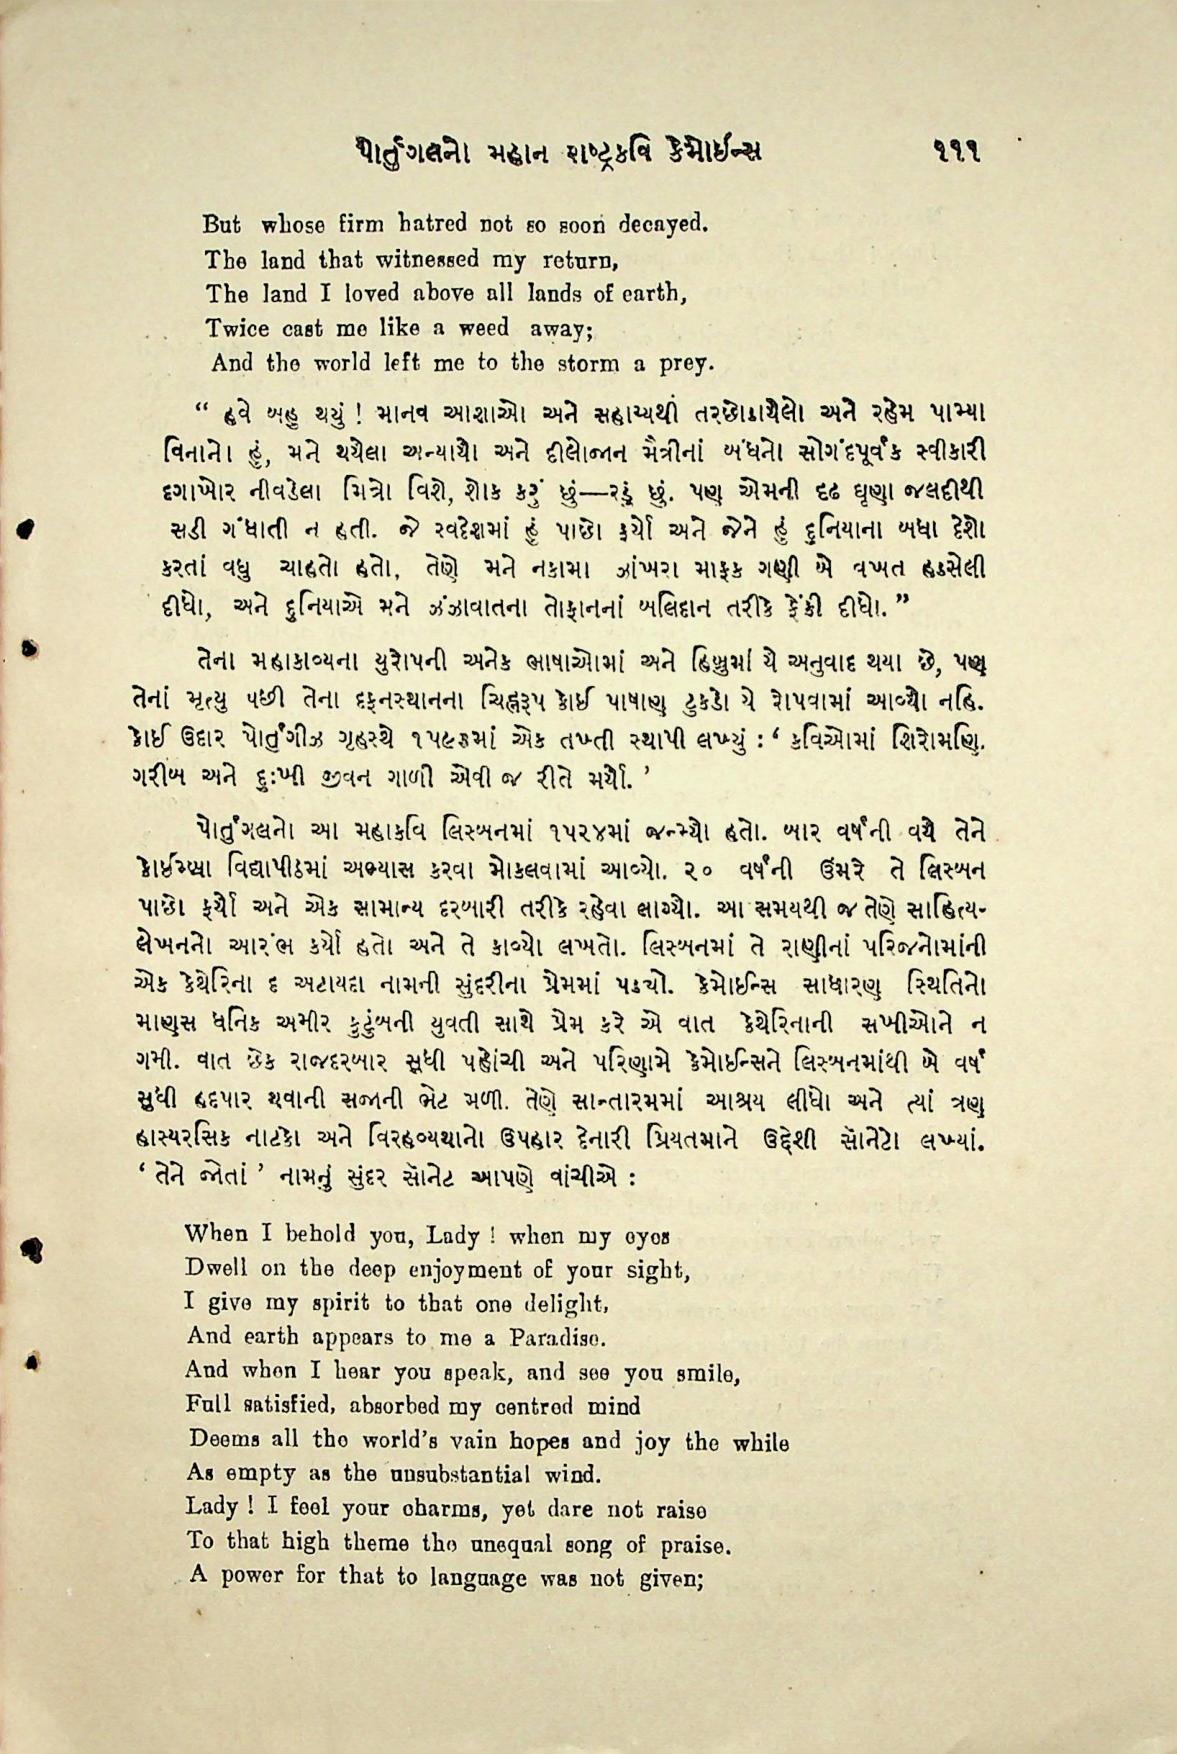 પોર્તુંગલનો મહાન રાષ્ટ્રકવિ કેમોઈન્સ ૧૧૧
But whose firm hatred not so soon decayed.
The land that witnessed my return,
The land I loved above all lands of earth,
Twice cast me like a weed away;
And the world left me to the storm a prey.
“ હવે બહુ થયું ! માનવ આશાઓ અને સહાય્યથી તરછોડાયેલો અને રહેમ પામ્યા
વિનાનો હું, મને થયેલા અન્યાયો અને દીલોજાન મૈત્રીનાં બંધનો સોગંદપૂર્વક સ્વીકારી
દગાખોર નીવડેલા મિત્રો વિશે, શોક કરું છું—રડું છું. પણ એમની દઢ ઘૃણા જલદીથી
સડી ગંધાતી ન હતી. જે સ્વદેશમાં હું પાછો ફર્યો અને જેને હું દુનિયાના બધા દેશો
કરતાં વધુ ચાહતો હતો, તેણે મને નકામા ઝાંખરા માફક ગણી બે વખત હડસેલી
દીધો, અને દુનિયાએ મને ઝંઝાવાતના તોફાનનાં બલિદાન તરીકે ફેંકી દીધો. ”
તેના મહાકાવ્યના યુરોપની અનેક ભાષાઓમાં અને હિબ્રુમાં યે અનુવાદ થયા છે, પણ
તેનાં મૃત્યુ પછી તેના દફનસ્થાનના ચિહ્નરૂપ કોઈ પાષાણ ટુકડો યે રોપવામાં આવ્યો નહિ.
કોઈ ઉદાર પોર્તુંગીઝ ગૃહસ્થે ૧૫૯૬માં એક તખ્તી સ્થાપી લખ્યું : ‘ કવિઓમાં શિરોમણિ.
ગરીબ અને દુઃખી જીવન ગાળી એવી જ રીતે મર્યો. ’
પોર્તુંગલનો આ મહાકવિ લિસ્બનમાં ૧૫૨૪માં જન્મ્યો હતો. બાર વર્ષની વયે તેને
કોઈમ્બ્રા વિદ્યાપીઠમાં અભ્યાસ કરવા મોકલવામાં આવ્યો. ૨૦ વર્ષની ઉંમરે તે લિસ્બન
પાછો ફર્યો અને એક સામાન્ય દરબારી તરીકે રહેવા લાગ્યો. આ સમયથી જ તેણે સાહિત્ય-
લેખનનો આરંભ કર્યો હતો અને તે કાવ્યો લખતો. લિસ્બનમાં તે રાણીનાં પરિજનોમાંની
એક કેથેરિના દ અટાયદા નામની સુંદરીના પ્રેમમાં પડ્યો. કેમોઈન્સ સાધારણ સ્થિતિનો
માણસ ધનિક અમીર કુટુંબની યુવતી સાથે પ્રેમ કરે એ વાત કેથેરિનાની સખીઓને ન
ગમી. વાત છેક રાજદરબાર સુધી પહોંચી અને પરિણામે કેમોઈન્સિને લિસ્બનમાંથી બે વર્ષ
સુધી હદપાર થવાની સજાની ભેટ મળી. તેણે સાન્તારમમાં આશ્રય લીધો અને ત્યાં ત્રણ
હાસ્યરસિક નાટકો અને વિરહવ્યથાનો ઉપહાર દેનારી પ્રિયતમાને ઉદ્દેશી સૉનેટો લખ્યાં.
‘ તેને જોતાં ’ નામનું સુંદર સૉનેટ આપણે વાંચીએ :
When I behold you, Lady ! when my eyes
Dwell on the deep enjoyment of your sight,
I give my spirit to that one delight,
And earth appears to me a Paradise.
And when I hear you speak, and see you smile,
Full satisfied, absorbed my centred mind
Deems all the world's vain hopes and joy the while
As empty as the unsubstantial wind.
Lady ! I feel your charms, yet dare not raise
To that high theme the unequal song of praise.
A power for that to language was not given;